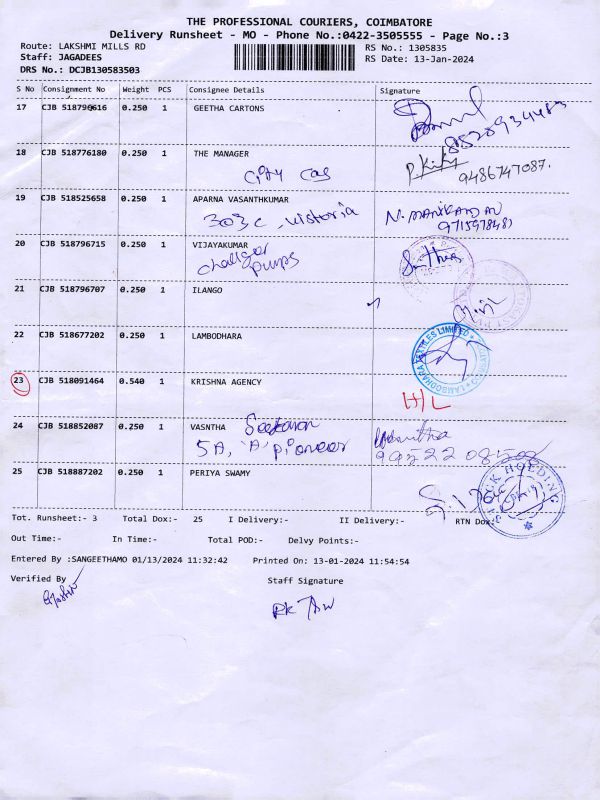 THE PROFESSIONAL COURIERS, COIMBATORE
Delivery Runsheet - MO - Phone No.:0422-3505555 - Page No.:3
Route: LAKSHMI MILLS RD RS No.: 1305835
Staff: JAGADEES RS Date: 13-Jan-2024
DRS No.: DCJB130583503
S No Consignment No Weight PCS Consignee Details Signature
17 CJB 518790616 0.250 1 GEETHA CARTONS
18 CJB 518776180 0.250 1 THE MANAGER
City Cag 9486747087.
19 CJB 518525658 0.250 1 APARNA VASANTHKUMAR
303 C, Victoria N. MANIKANDAN
9715978481
20 CJB 518796715 0.250 1 VIJAYAKUMAR
Pumps
21 CJB 518796707 0.250 1 ILANGO
22 CJB 518677202 0.250 1 LAMBODHARA
LAMBODHARA TEXTILES LIMITED
23 CJB 518091464 0.540 1 KRISHNA AGENCY
H/L
24 CJB 518852087 0.250 1 VASNTHA
5A, 'A' pioneer
25 CJB 518887202 0.250 1 PERIYA SWAMY
Tot. Runsheet:- 3 Total Dox:- 25 I Delivery:- II Delivery:- RTN Dox:
Out Time:- In Time:- Total POD:- Delvy Points:-
Entered By :SANGEETHAMO 01/13/2024 11:32:42 Printed On: 13-01-2024 11:54:54
Verified By Staff Signature